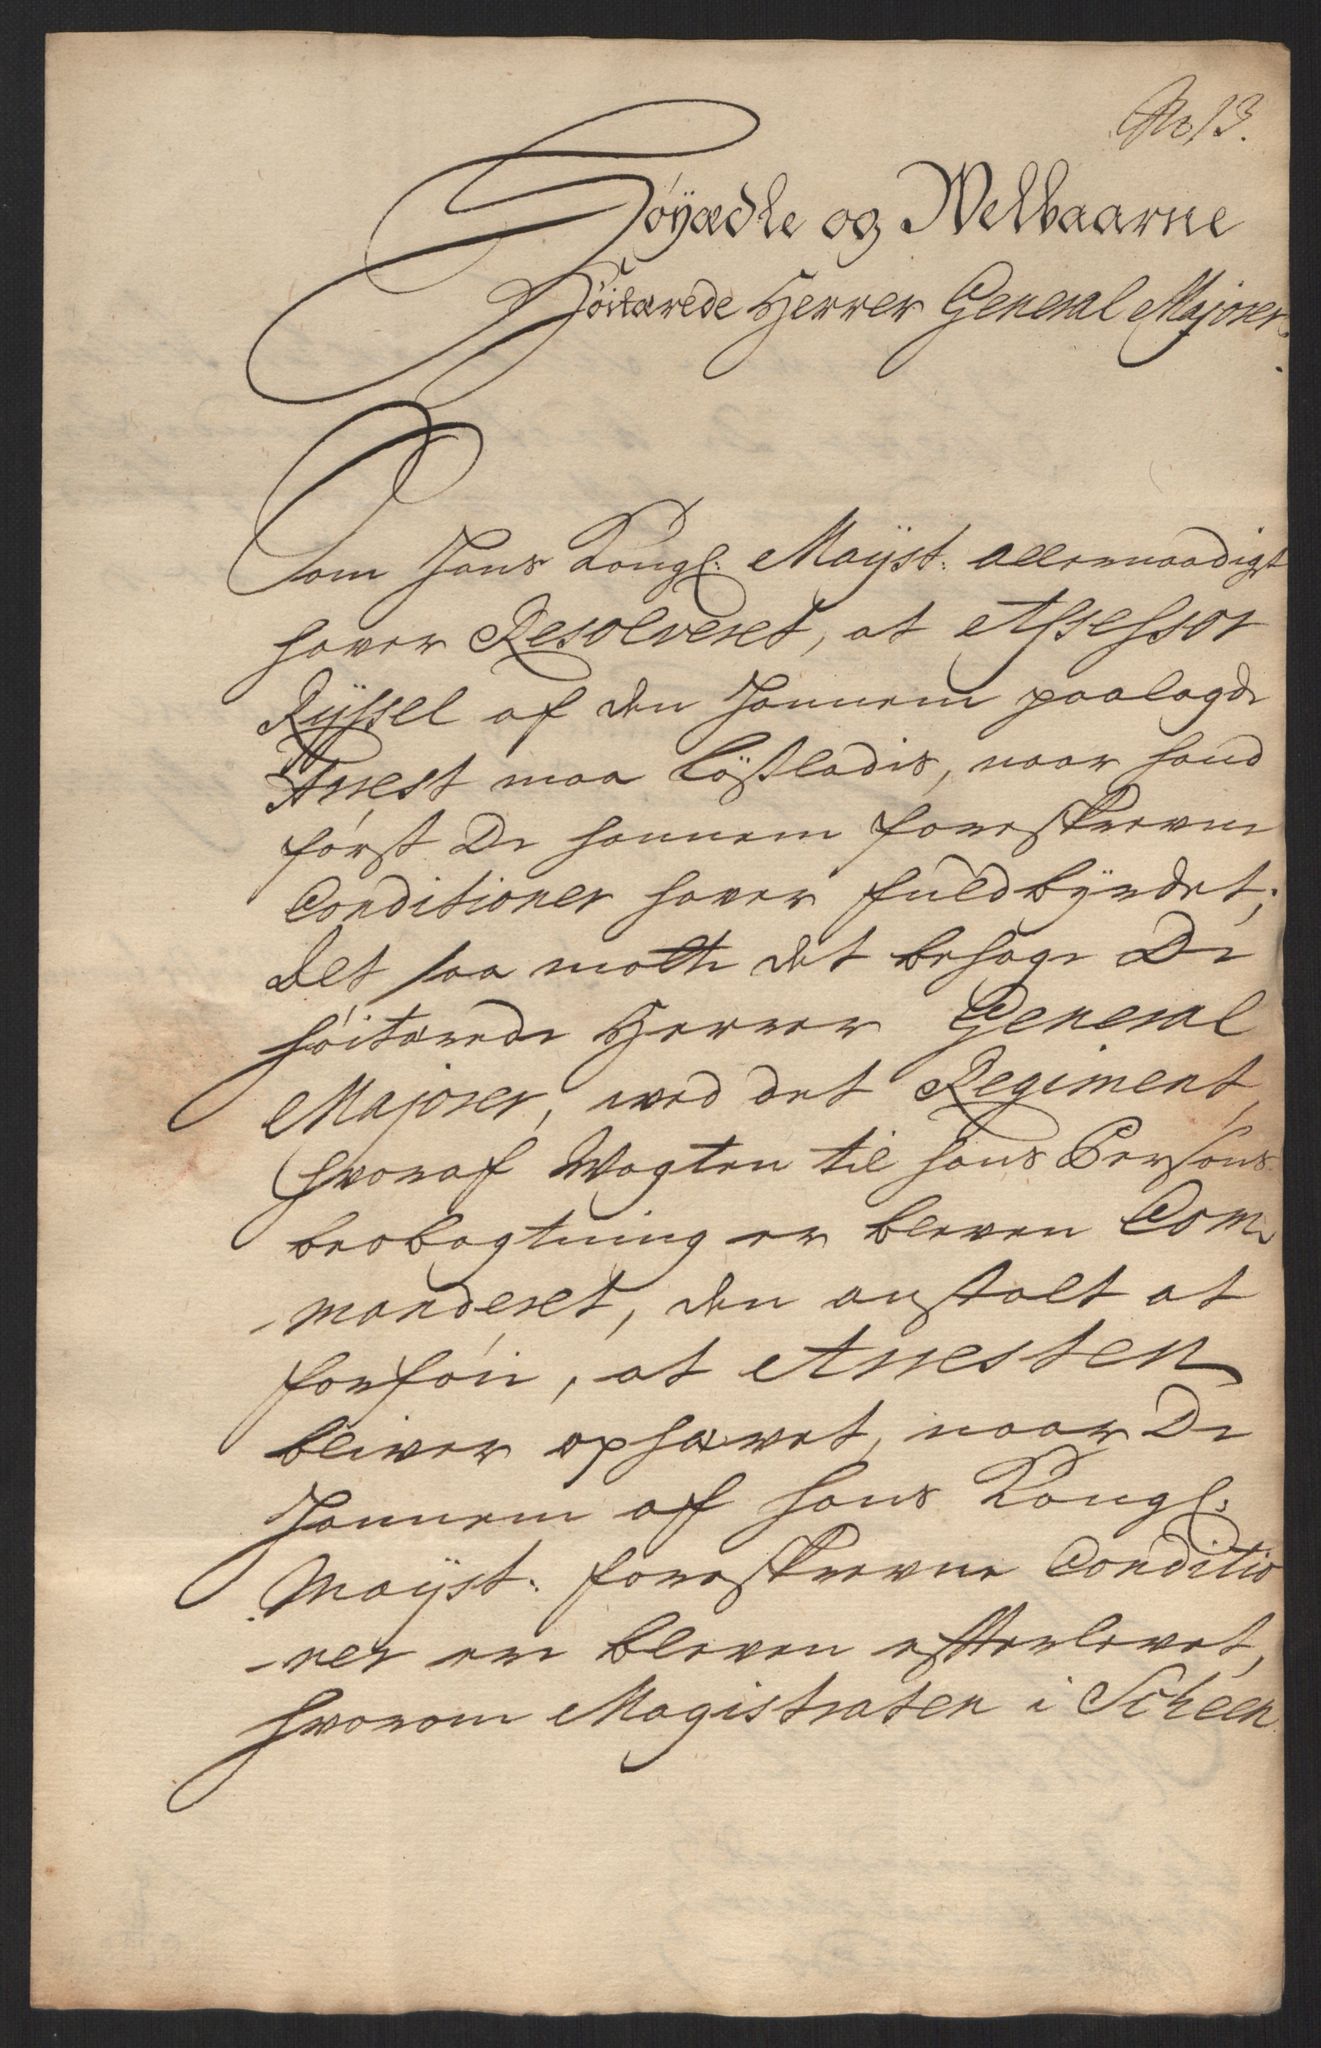 No 13.
Høÿædle og Welbaarne
Høitærede Herrer General Majorer.
Som Hans Kongl: Mayst: allernaadigst
hafver Resolveret, at Assessor
Rÿssel af den hannem paalagde
Arrest maa løsladis, naar hand
først de hannem foreskrevne
Conditioner hafver fuldbÿrdet;
Det saa motte det behage De
høitærede Herrer General
Majorer, ved det Regiment,
hvoraf Wagten til hans Persons
beobagtning er bleven Com-
manderet, den anstalt at
forføi, at Arresten
bliver ophævet, naar De
hannem af hans Kongl:
Mayst: foreskrevne Conditio
ner ere bleven efterlevet,
hvorom Magistraten i Scheen